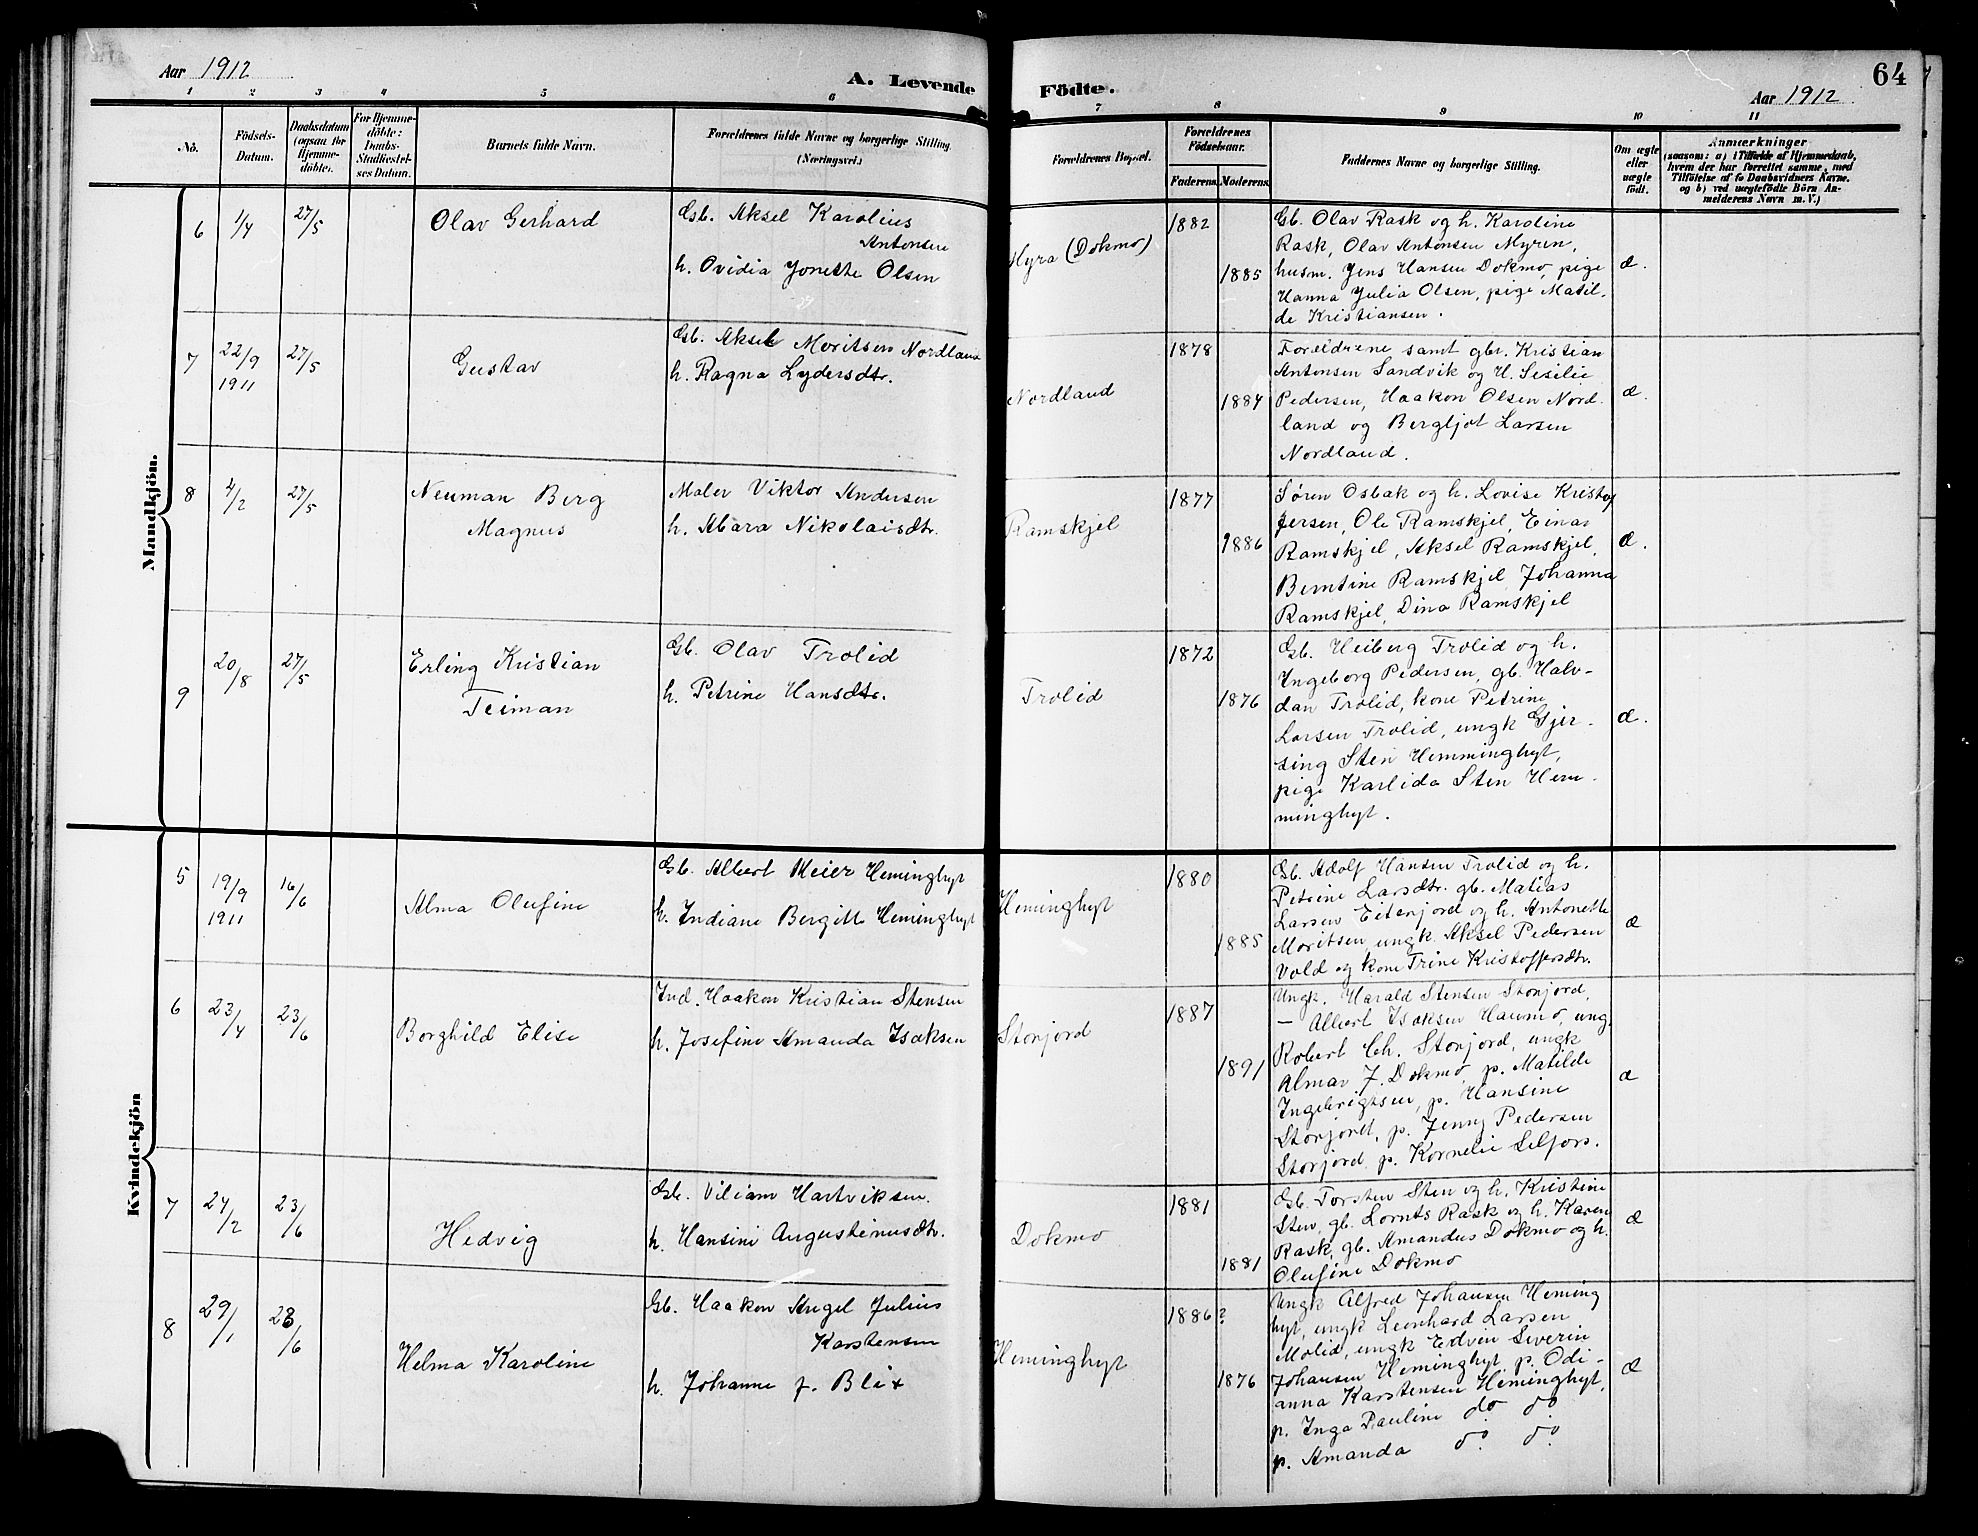 Aar 1912
A. Levende Födte.
64
Aar 1912
1 2 3 4 5 6 7 8 9 10 11
No.
Födsels-
Datum.
Daabsdatum
(ogsaa for
Hjemme-
döbte).
For Hjemme-
döbte:
Daabs-
Stadfæstel-
ses Datum.
Barnets fulde Navn.
Forældrenes fulde Navne og borgerlige Stilling
(Næringsvei.)
Forældrenes Bopæl.
Forældrenes
Födselsaar.
Faderens. Moderens.
Faddernes Navne og borgerlige Stilling.
Om ægte
eller
uægte
födt.
Anmærkninger
(saasom: a) i Tilfælde af Hjemmedaab,
hvem der har forrettet samme, med
Tilföielse af to Daabsvidners Navne.
og b) ved uægtefödte Börn An-
melderens Navn m. V.)
Mandkjön.
6
1/4
27/5
Olav Gerhard
Gb. Aksel Karolius
Antonsen
h. Ovidia Jonette Olsen
Myra (Dokmo)
1882
1885
Gb. Olav Rask og h. Karoline
Rask, Olav Antonsen Myren,
husm. Jens Hansen Dokmo, pige
Hanna Julia Olsen, pige Matil-
de Kristiansen.
æ.
7
22/9
1911
27/5
Gustav
Gb. Aksel Moritsen Nordland
h. Ragna Lydersdtr.
Nordland
1878
1884
Forældrene samt gbr. Kristian
Antonsen Sandvik og H. Sesilie
Pedersen, Haakon Olsen Nord-
land og Bergljot Larsen
Nordland.
æ.
8
4/2
27/5
Neuman Berg
Magnus
Maler Viktor Andersen
h. Mara Nikolaisdtr.
Ramskjel
1877
1886
Søren Osbak og h. Lovise Kristof
fersen, Ole Ramskjel, Einar
Ramskjel, Aksel Ramskjel,
Berntine Ramskjel, Johanna
Ramskjel, Dina Ramskjel
æ.
9
20/8
27/5
Erling Kristian
Teiman
Gb. Olav Trolid
h. Petrine Hansdtr.
Trolid
1872
1876
Gb. Heiberg Trolid og h.
Ingeborg Pedersen, gb. Halv-
dan Trolid, kone Petrine
Larsen Trolid, ungk Gjer-
ding Sten Hemminghyt,
pige Karlida Sten Hem-
minghyt.
æ.
Kvindekjön
5
19/9
1911
16/6
Alma Olufine
Gb. Albert Meier Heminghyt
h. Indiane Bergitte Heminghyt
Heminghyt
1880
1885
Gb. Adolf Hansen Trolid og h.
Petrine Larsdtr. gb. Matias
Larsen Eitenjord og h. Antonette
Moritsen, ungk. Aksel Pedersen
Vold og kone Trine Kristoffersdtr.
æ
6
23/4
23/6
Borghild Elise
Ind. Haakon Kristian Stensen
h. Josefine Amanda Isaksen
Storjord
1887
1891
Ungk. Harald Stensen Storjord,
— Albert Isaksen Haumo, ung.
Robert Ch. Storjord, ungk
Almar J. Dokmo, p. Matilde
Ingebrigtsen, p. Hansine
Storjord, p. Jenny Pedersen
Storjord, p. Kornelie Selfors.
æ
7
24/2
23/6
Hedvig
Gb. Viliam Hartviksen.
h. Hansine Augustinusdtr.
Dokmo
1881
1881
Gb. Torsten Sten og h. Kristine
Sten, gb. Lornts Rask og h. Karen
Rask, gb. Amandus Dokmo og h.
Olufine Dokmo
æ
8
29/1
23/6
Helma Karoline
Gb. Haakon Angel Julius
Karstensen
h. Johanne f. Blix
Heminghyt
1886?
1876
Ungk Alfred Johansen Heming
hyt, ungk Leonhard Larsen
Molid, ungk Edvin Severin
Johansen Heminghyt, p. Odi-
anna Karstensen Heminghyt,
p. Inga Pauline do do
p. Amanda do do
æ